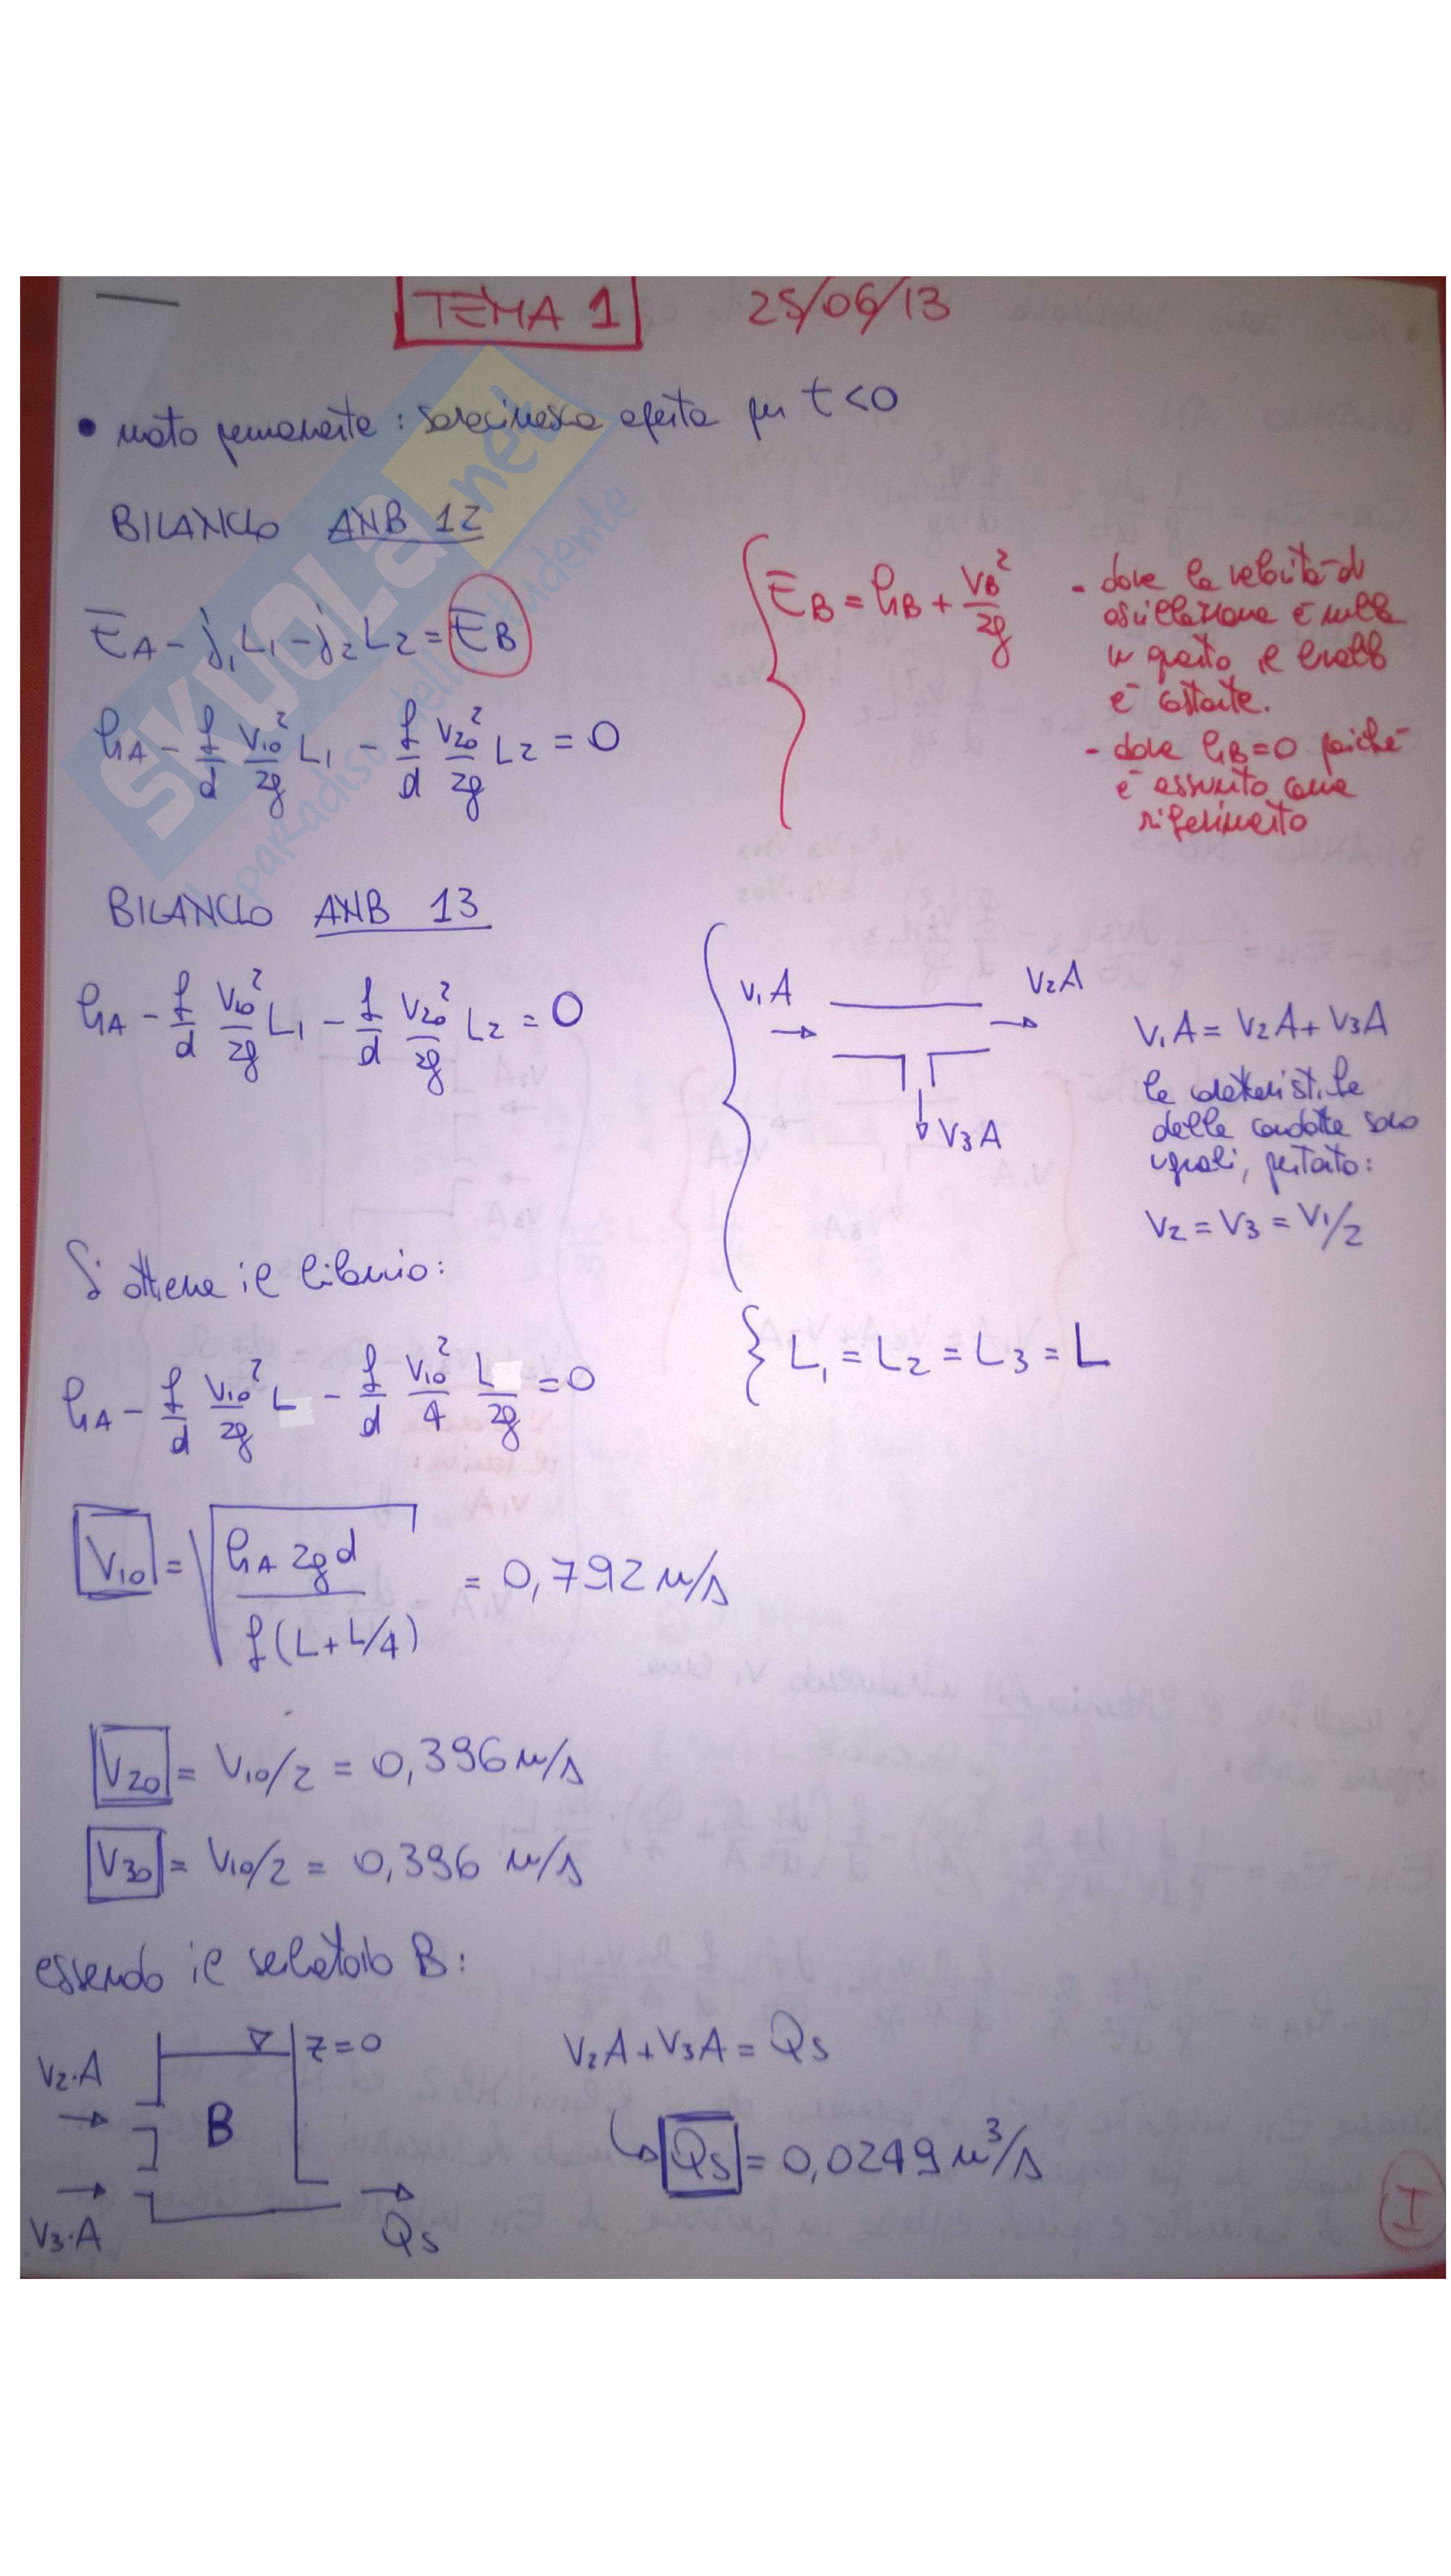 TEMA 1 25/06/13
• moto permanente: saracinesca aperta per t<0
BILANCIO ANB 12
E_A - j₁L₁ - j₂L₂ = E_B
h_A - f/d V₁₀²/2g L₁ - f/d V₂₀²/2g L₂ = 0
E_B = h_B + V_B²/2g
- dove la velocità di
oscillazione è nulla
in quanto il livello
è costante.
- dove h_B=0 poiché
è assunto come
riferimento
BILANCIO ANB 13
h_A - f/d V₁₀²/2g L₁ - f/d V₂₀²/2g L₂ = 0
V₁A
V₂A
V₃A
V₁A = V₂A + V₃A
le caratteristiche
delle condotte sono
uguali, pertanto:
V₂ = V₃ = V₁/2
Si ottiene il bilancio:
h_A - f/d V₁₀²/2g L - f/d V₁₀²/4 L/2g = 0
L₁ = L₂ = L₃ = L
V₁₀ = √(h_A 2gd / f(L+L/4)) = 0,792 m/s
V₂₀ = V₁₀/2 = 0,396 m/s
V₃₀ = V₁₀/2 = 0,396 m/s
essendo il serbatoio B:
V₂·A
z=0
B
V₃·A
Qs
V₂A + V₃A = Qs
Qs = 0,0249 m³/s
I
SKUOLA.net
il paRadiso dello studente